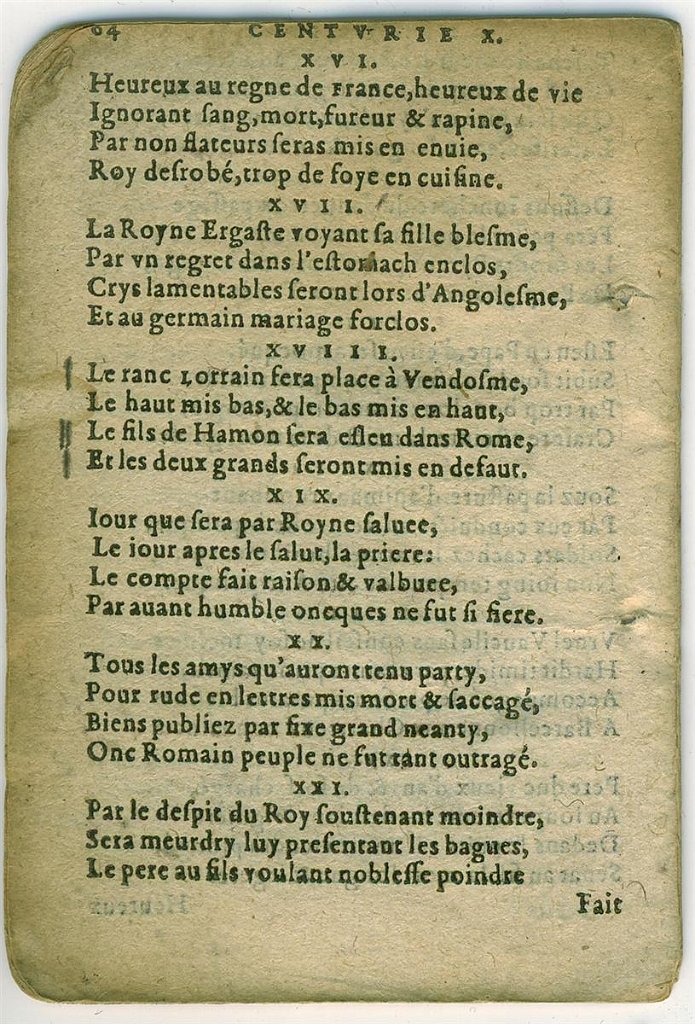 64 CENTVRIE X.
XVI.
Heureux au regne de France,heureux de vie
Ignorant ſang,mort,fureur & rapine,
Par non flateurs ſeras mis en enuie,
Roy deſrobé,trop de foye en cuiſine.
XVII.
La Royne Ergaſte voyant ſa fille bleſme,
Par vn regret dans l'eſtomach enclos,
Crys lamentables ſeront lors d'Angoleſme,
Et au germain mariage forclos.
XVIII.
Le ranc Lorrain fera place à Vendoſme,
Le haut mis bas,& le bas mis en haut,
Le fils de Hamon ſera eſleu dans Rome,
Et les deux grands ſeront mis en defaut.
XIX.
Iour que ſera par Royne ſaluee,
Le iour apres le ſalut,la priere:
Le compte fait raiſon & valbuee,
Par auant humble oncques ne fut ſi fiere.
XX.
Tous les amys qu'auront tenu party,
Pour rude en lettres mis mort & ſaccagé,
Biens publiez par fixe grand neanty,
Onc Romain peuple ne fut tant outragé.
XXI.
Par le deſpit du Roy ſouſtenant moindre,
Sera meurdry luy preſentant les bagues,
Le pere au fils voulant nobleſſe poindre
Fait